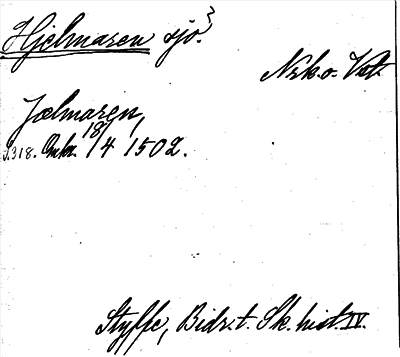 Hjelmaren sjö.
Nrko. Vet.
Jælmaren,
s. 318. Omkr. 18/4 1502.
Styffe, Bidr. t. Sk. hist. IV.